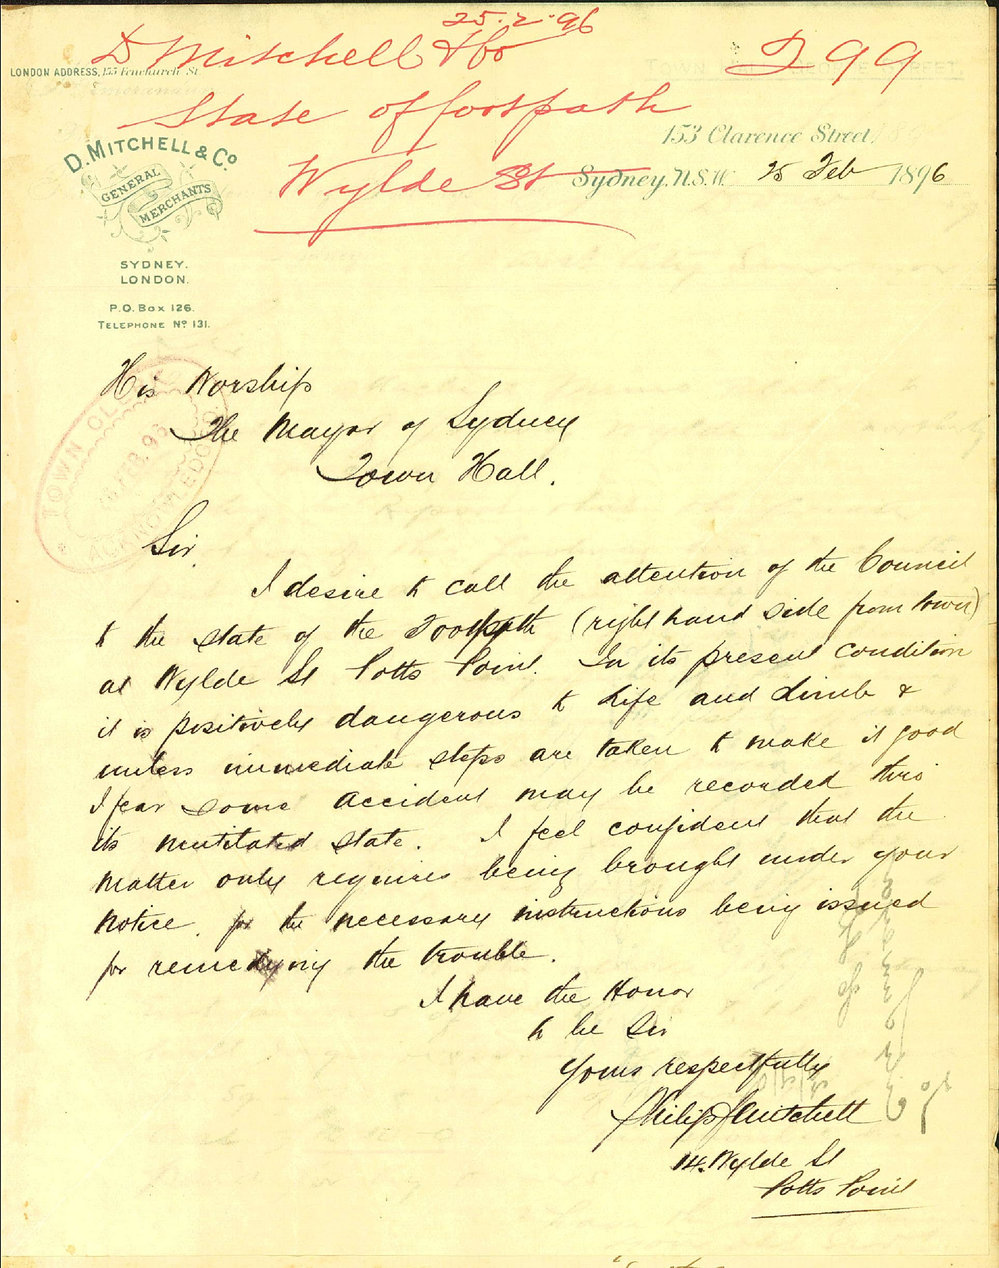 25.2.96
D Mitchell & Co
299
State of footpath
Wylde St
LONDON ADDRESS, 155 Fenchurch St.
D. MITCHELL & CO.
GENERAL
MERCHANTS
SYDNEY.
LONDON.
P.O. BOX 126.
TELEPHONE No 131.
153 Clarence Street,
Sydney, N.S.W. 25 Feb 1896
TOWN CLERK
FEB. 96
ACKNOWLEDGED
His Worship
The Mayor of Sydney
Town Hall.
Sir,
I desire to call the attention of the Council
to the state of the Footpath (right hand side from town)
at Wylde St Potts Point. In its present condition
it is positively dangerous to Life and Limb &
unless immediate steps are taken to make it good
I fear some accident may be recorded thro'
its mutilated state. I feel confident that the
matter only requires being brought under your
notice, for the necessary instructions being issued
for remedying the trouble.
I have the Honor
to be Sir
Yours respectfully
Philip Mitchell
14. Wylde St
Potts Point